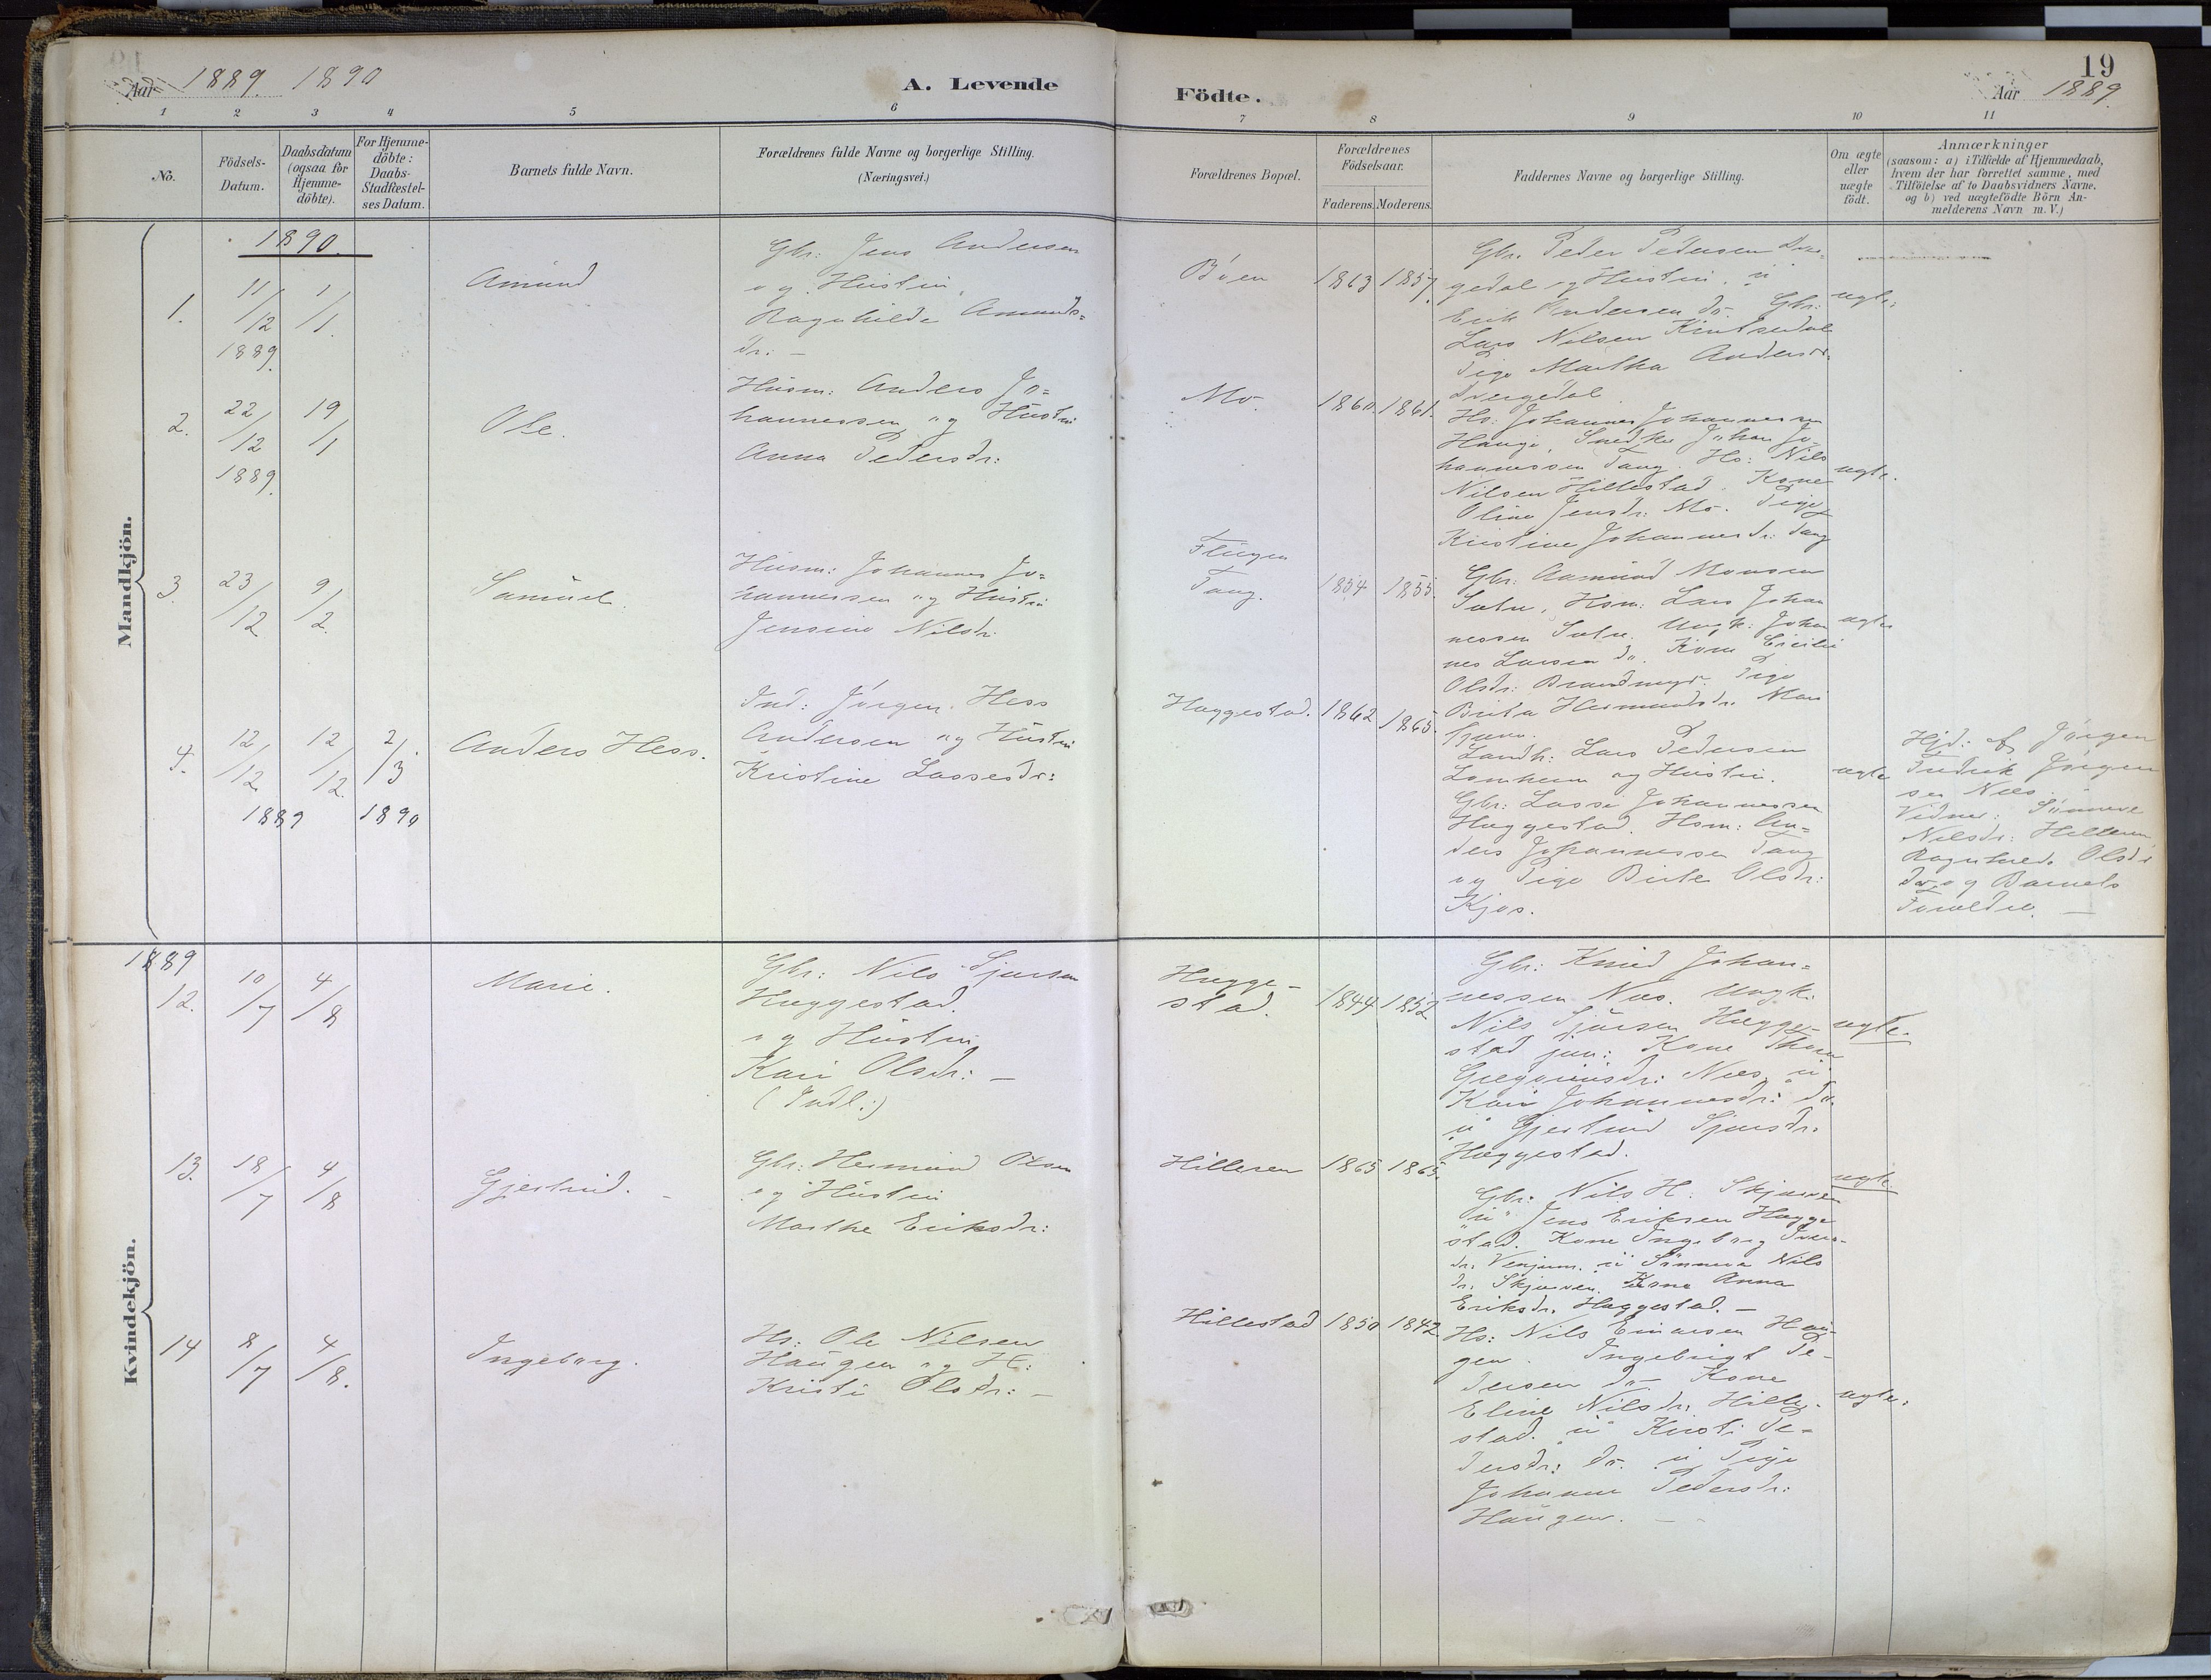 19
Aar 1889. 1890
A. Levende
Födte.
Aar 1889.
1 2 3 4 5 6 7 8 9 10 11
No.
Födsels-
Datum.
Daabsdatum
(ogsaa for
Hjemme-
döbte).
For Hjemme-
döbte:
Daabs-
Stadfæstel-
ses Datum.
Barnets fulde Navn.
Forældrenes fulde Navne og borgerlige Stilling.
(Næringsvei.)
Forældrenes Bopæl.
Forældrenes
Födselsaar.
Faderens. Moderens.
Faddernes Navne og borgerlige Stilling.
Om ægte
eller
uægte
födt.
Anmærkninger
(saasom: a) i Tilfælde af Hjemmedaab,
hvem der har forrettet samme, med
Tilföielse af to Daabsvidners Navne,
og b) ved uægtefödte Börn An-
melderens Navn m.V.)
Mandkjön.
1890.
1.
11/12
1889
1/1.
Amund
Gbr: Jens Andersen
og Hustru
Ragnhilde Amunds=
dr: -
Böen
1863 1857.
Gbr. Peder Pedersen
gedal og Hustru. "
Erik Andersen do. Gbr:
Lars Nilsen
Pige Martha Andersdr.
ægte
2.
22/12
1889
19/1
Ole.
Husm: Anders Jo=
hannessen og Hustru
Anna Pedersdr:
Mo.
1860. 1861.
Hs: Johannes Johannessen
Hauge, Snedker Johan Jo-
hannessen Tang. Hs: Nils
Nilsen Hillestad. Kone
Oline Jensdr: Mo. Pige
Kristine Johannesdr: Tang
ægte.
3.
23/12
9/2.
Samuel.
Husm: Johannes Jo=
hannessen og Hustru
Jensine Nilsdr.
Flugen
Tang.
1854 1855.
Gbr: Aamund Monsen
Sætre, Hsm: Lars Johan
nessen Sætre. Ungk: Johan
nes Larsen do. Kone
Olsdr: Pige
Brita Hermundsdr.
ægte
4.
12/12
12/12
2/3
1889 1890
Anders Hess.
Ind: Jörgen Hess
Andersen og Hustru
Kristine Lassesdr:
Hæggestad.
1862 1865.
Landh: Lars Pedersen
Lomheim og Hustru.
Gbr: Lasse Johannessen
Hæggestad. Hsm: An=
ders Johannessen Tang
og Pige Brite Olsdr:
Kjos.
ægte
Hjd: af Jörgen
Fredrik Jörgen
sen Næs.
Vidner: Sönneve
Nilsdr: Hilleren
Ragnhild Olsdr
do og Barnets
Forældre. —
Kvindekjön.
1889
12.
10/7
4/8
Marie.
Gbr: Nils Sjursen
Hæggestad.
og Hustru
Kari Olsdr: —
(Indl:)
Hægge-
stad.
1844 1852
Gbr: Knud Johan=
nessen Næs. Ungk:
Nils Sjursen Hægge-
stad jun: Kone
Gregoriusdr: Næs, "
Kari Johannesdr: do.
" Gjertrud Sjursdr.
Hæggestad.
ægte.
13.
18/7
4/8
Gjertrud. -
Gbr: Hermund Olsen
og Hustru
Marthe Eriksdr:
Hilleren
1865 1865.
Gbr: Nils H. Skjerven
" Jens Eriksen Hægge
stad. Kone Ingeborg Ivers-
dr. Venjum. " Sönneva Nils
dr. Skjerven. Kone Anna
Eriksdr. Hæggestad. —
ægte
14
8/7
4/8.
Ingeborg.
Hs: Ole Nilsen
Haugen og H:
Kristi Olsdr: —
Hillestad
1850 1842
Hs: Nils Einarsen Hau-
gen. Ingebrigt Pe-
dersen do — Kone
Eline Nilsdr: Hille-
stad. " Kirsti Pe-
dersdr: do. " Pige
Johanne Pedersdr:
Haugen. —
ægte.